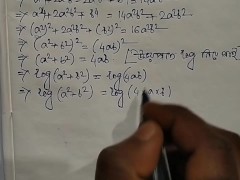 ⇒ a⁴ + 2a²b² + b⁴ = 14a²b² + 2a²b²
⇒ (a²)² + 2a²b² + (b²)² = 16a²b²
⇒ (a² + b²)² = (4ab)²
⇒ (a² + b²) = 4ab [উভয়পক্ষে log নিয়ে পাই]
⇒ log (a² + b²) = log (4ab)
⇒ log (a² + b²) = log (4